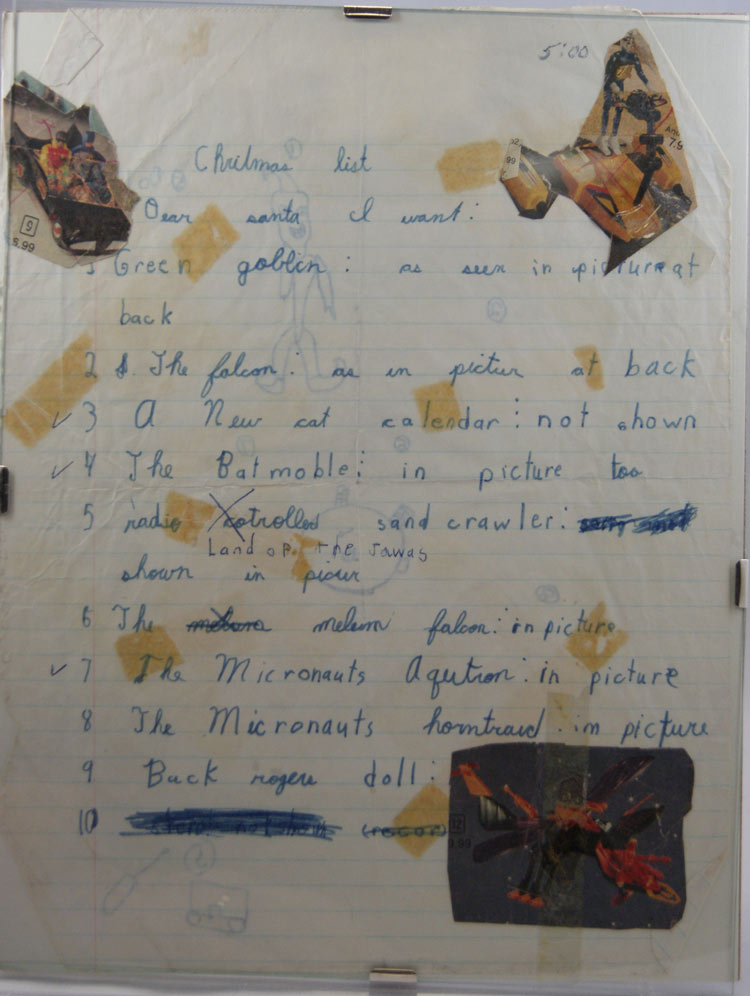 5:00
Chritmas list
Dear santa I want:
1 Green goblin: as seen in picture at
back
2 . The falcon: as in pictur at back
✓ 3 A New cat calendar: not shown
✓ 4 The Batmoble: in picture too
5 radio cotrolled sand crawler:
Land of the Jawas
shown in picur
6 The melem falcon: in picture
✓ 7 The Micronauts Aqutron: in picture
8 The Micronauts horntraid: in picture
9 Buck rogers doll:
10 (recor)
9
6.99
99
7.9
12
9.99